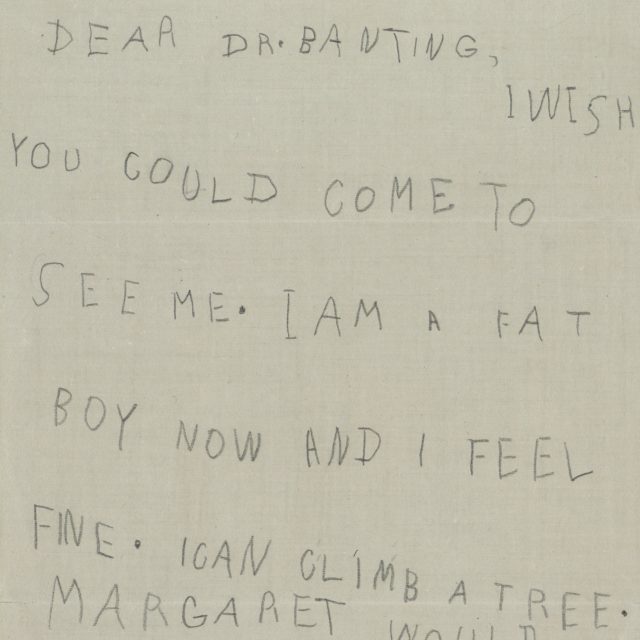 DEAR DR. BANTING,
I WISH
YOU COULD COME TO
SEE ME. I AM A FAT
BOY NOW AND I FEEL
FINE. I CAN CLIMB A TREE.
MARGARET WOULD